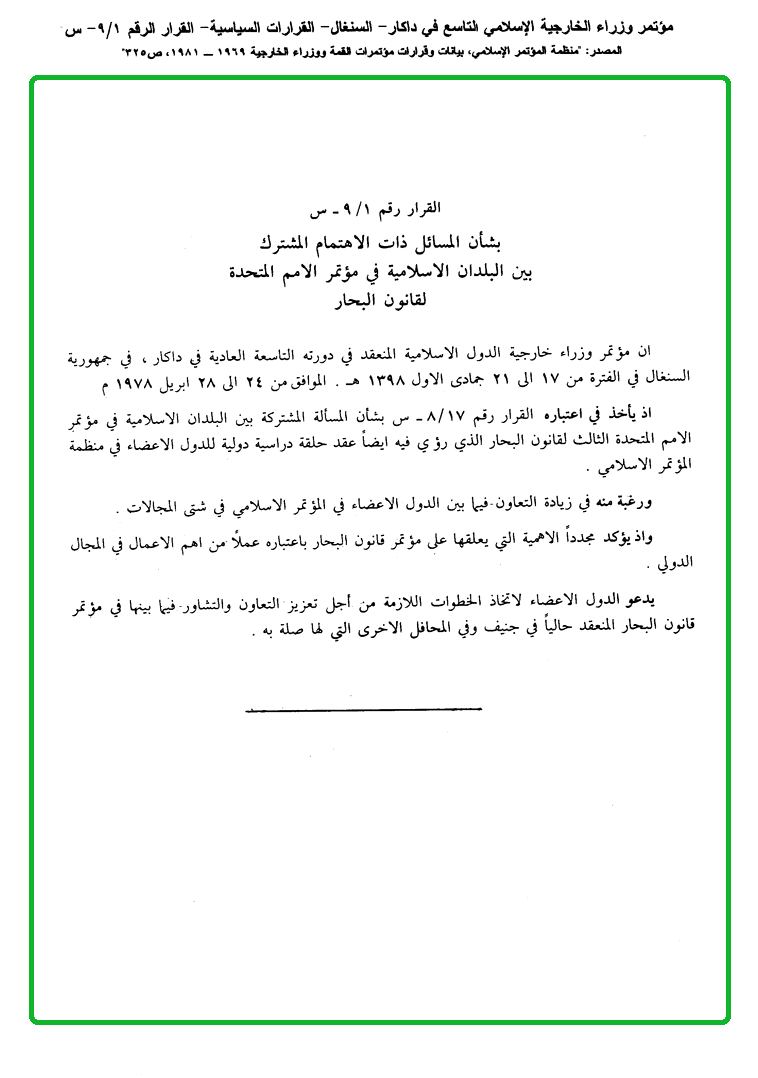 مؤتمر وزراء الخارجية الإسلامي التاسع في داكار- السنغال- القرارات السياسية- القرار الرقم ٩/١- س
المصدر: "منظمة المؤتمر الإسلامي، بيانات وقرارات مؤتمرات القمة ووزراء الخارجية ١٩٦٩ ــ ١٩٨١، ص٣٢٥"
القرار رقم ٩/١ ـ س
بشأن المسائل ذات الاهتمام المشترك
بين البلدان الاسلامية في مؤتمر الامم المتحدة
لقانون البحار
ان مؤتمر وزراء خارجية الدول الاسلامية المنعقد في دورته التاسعة العادية في داكار ، في جمهورية
السنغال في الفترة من ١٧ الى ٢١ جمادى الاول ١٣٩٨ هـ . الموافق من ٢٤ الى ٢٨ ابريل ١٩٧٨ م
اذ يأخذ في اعتباره القرار رقم ٨/١٧ ـ س بشأن المسألة المشتركة بين البلدان الاسلامية في مؤتمر
الامم المتحدة الثالث لقانون البحار الذي رؤي فيه ايضاً عقد حلقة دراسية دولية للدول الاعضاء في منظمة
المؤتمر الاسلامي .
ورغبة منه في زيادة التعاون فيما بين الدول الاعضاء في المؤتمر الاسلامي في شتى المجالات .
واذ يؤكد مجدداً الاهمية التي يعلقها على مؤتمر قانون البحار باعتباره عملاً من اهم الاعمال في المجال
الدولي .
يدعو الدول الاعضاء لاتخاذ الخطوات اللازمة من أجل تعزيز التعاون والتشاور فيما بينها في مؤتمر
قانون البحار المنعقد حالياً في جنيف وفي المحافل الاخرى التي لها صلة به .